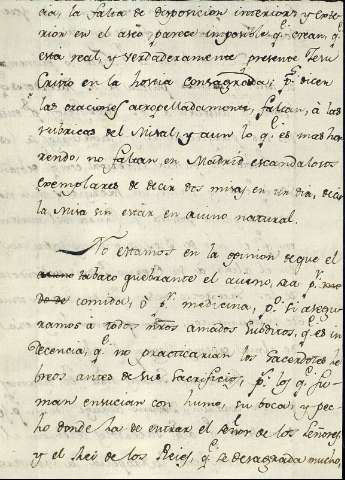 cia, la falta de disposicion interior, y exte-
rior en el aseo, parece imposible qᵉ crean, qᵉ
està real, y verdaderamente presente Jesu
Cristo en la hostia consagrada; pˢ dicen
las oraciones atropelladamente, faltan, à las
rubricas del Misal, y aun lo qᵉ es mas hor-
rendo, no faltan en Madrid escandalosos
exemplares de decir dos misas en un dia, decir
la Misa sin estar en ayuno natural.
No estamos en la opinion de que el
tabaco quebrante el ayuno, sea pʳ
comida, ò pʳ medicina, pᵒ si asegu-
ramos à todos nr̃os amados subditos, qᵉ es in-
decencia, qᵉ no practicarian los Sacerdotes he-
breos antes de sus sacrificios, pˢ los qᵉ fu-
man ensucian con humo, su boca, y pe-
cho donde ha de entrar el Señor de los Señores,
y el Rei de los Reies, qᵉ se desagrada mucho,